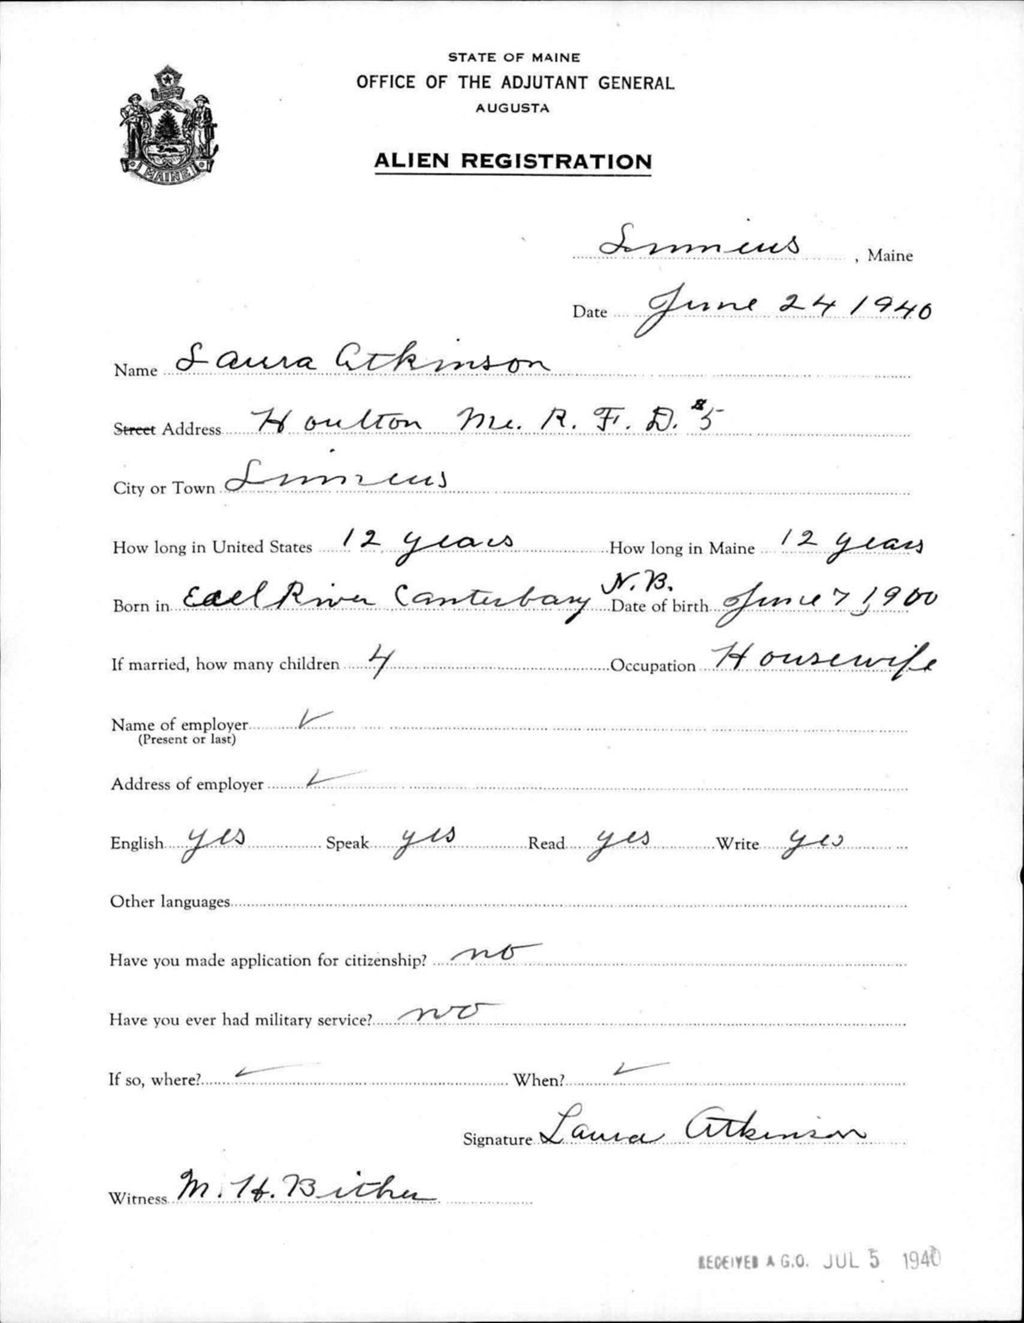 STATE OF MAINE
OFFICE OF THE ADJUTANT GENERAL
AUGUSTA
MAINE
ALIEN REGISTRATION
Linneus, Maine
Date June 24 1940
Name Laura Atkinson
Street Address Houlton Me. R. F. D. #5
City or Town Linneus
How long in United States 12 years How long in Maine 12 years
Born in Eel River Canterbury N.B. Date of birth June 7, 1900
If married, how many children 4 Occupation Housewife
Name of employer ✓
(Present or last)
Address of employer ✓
English yes Speak yes Read yes Write yes
Other languages
Have you made application for citizenship? no
Have you ever had military service? no
If so, where? ✓ When? ✓
Signature Laura Atkinson
Witness M. H. Bither
RECEIVED A.G.O. JUL 5 1940